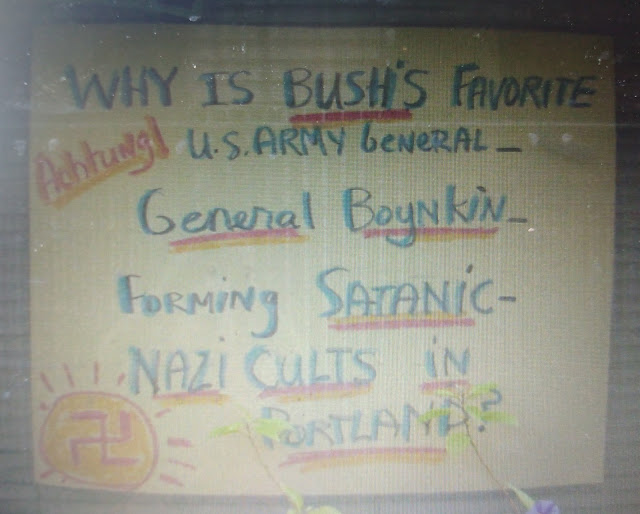 WHY IS BUSH'S FAVORITE
Achtung! U.S. ARMY GENERAL –
General BoyNKiN –
FORMiNg SATANiC -
NAZi CULTS iN
PORTLAND?